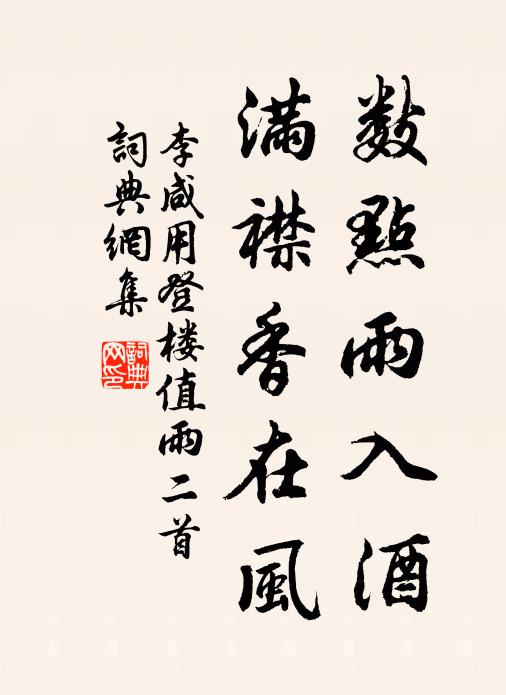 数點雨入酒
滿襟香在風
李咸用登楼值雨二首
詞典網集
詞典网印